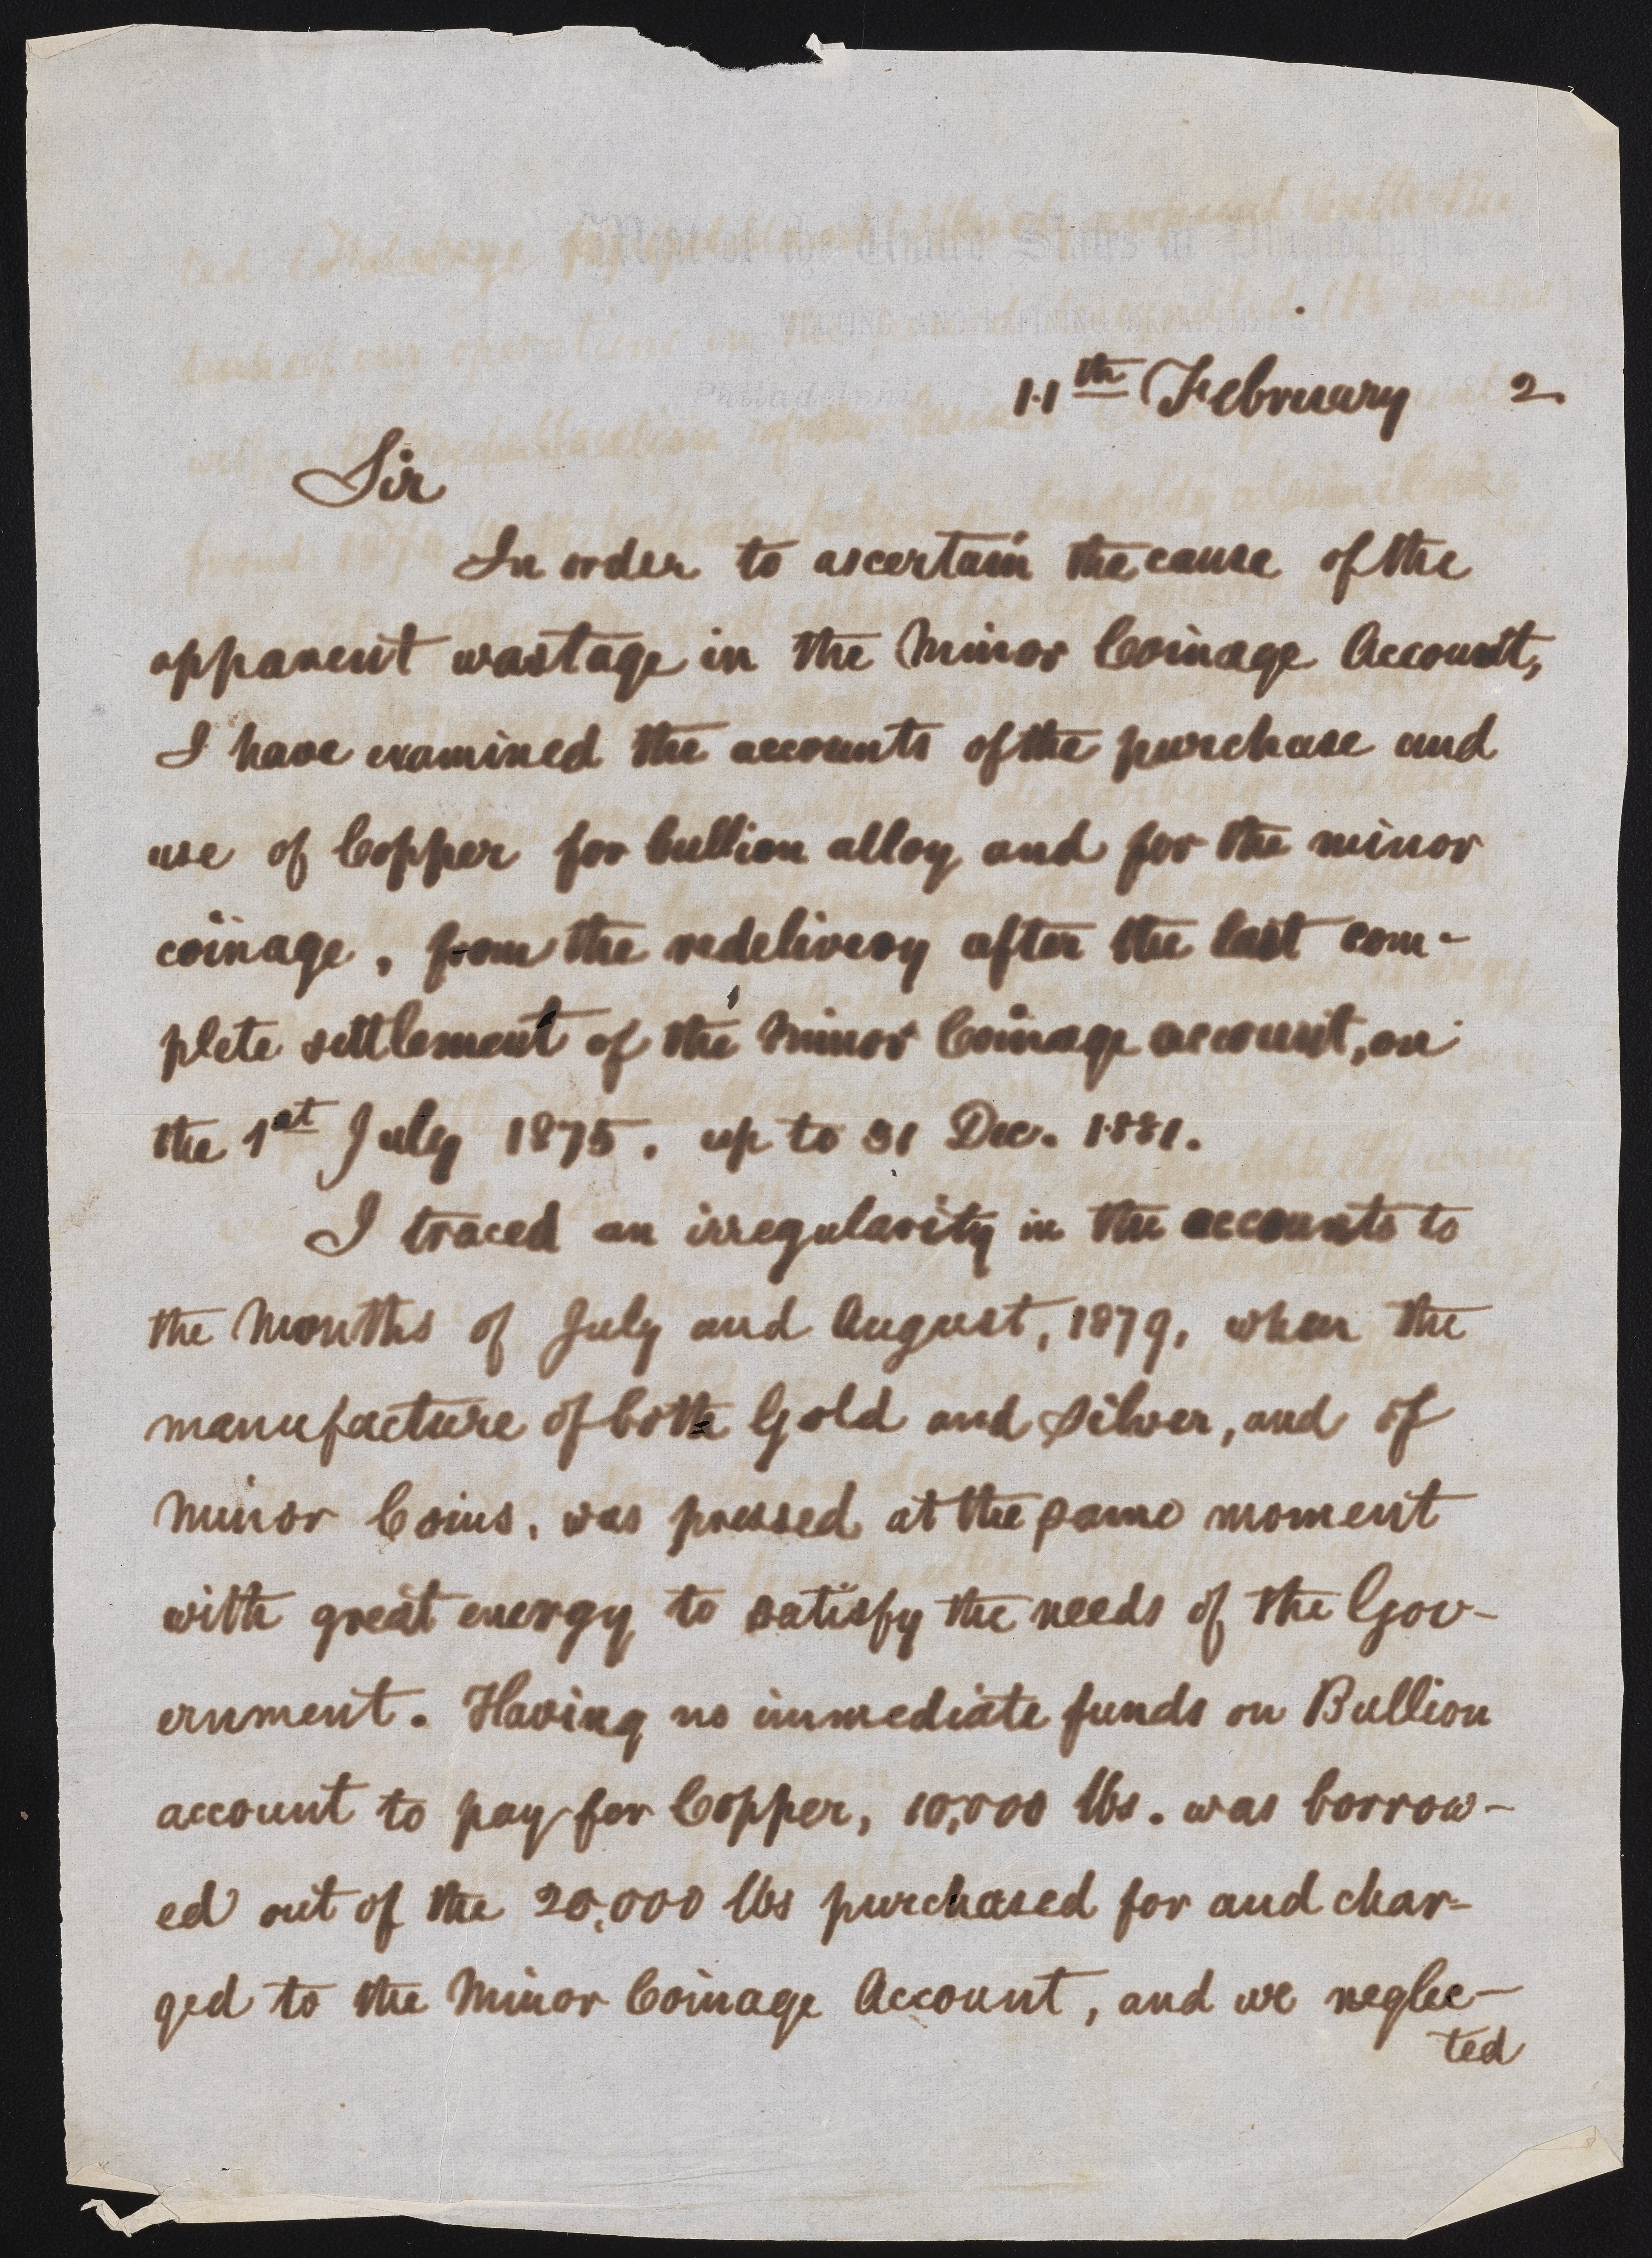 Mint of the United States at Philadelphia
MELTING AND REFINING DEPARTMENT
Philadelphia 188
11th February 2.
Sir
In order to ascertain the cause of the
apparent wastage in the Minor Coinage Account,
I have examined the accounts of the purchase and
use of Copper for bullion alloy and for the minor
coinage, from the redelivery after the last com-
plete settlement of the Minor Coinage account, on
the 1st July 1875, up to 31 Dec. 1881.
I traced an irregularity in the accounts to
the Months of July and August, 1879, when the
manufacture of both Gold and Silver, and of
Minor Coins, was pressed at the same moment
with great energy to satisfy the needs of the Gov-
ernment. Having no immediate funds on Bullion
account to pay for Copper, 10,000 lbs. was borrow-
ed out of the 20,000 lbs purchased for and char-
ged to the Minor Coinage Account, and we neglec-
ted